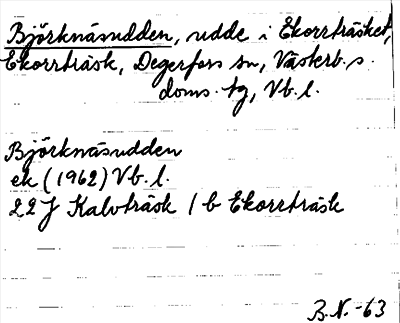 Björknäsudden, udde i Ekorrträsket,
Ekorrträsk, Degerfors sn, Västerb. s.
doms. tg, Vb. l.
Björknäsudden
ek (1962) Vb. l.
22J Kalvträsk 1 b Ekorrträsk
B.N. -63